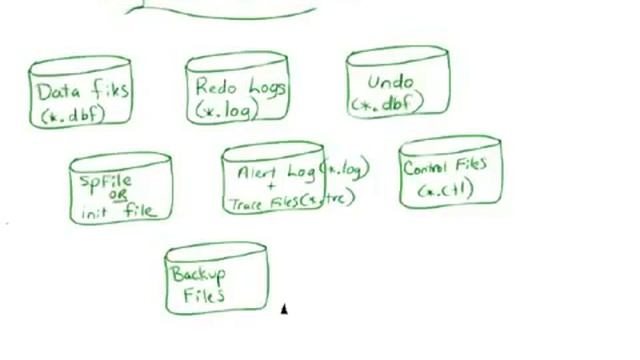 Data files
(*.dbf)
Redo Logs
(*.log)
Undo
(*.dbf)
Spfile
OR
init file
Alert Log (*.log)
+
Trace Files (*.trc)
Control Files
(*.ctl)
Backup
Files